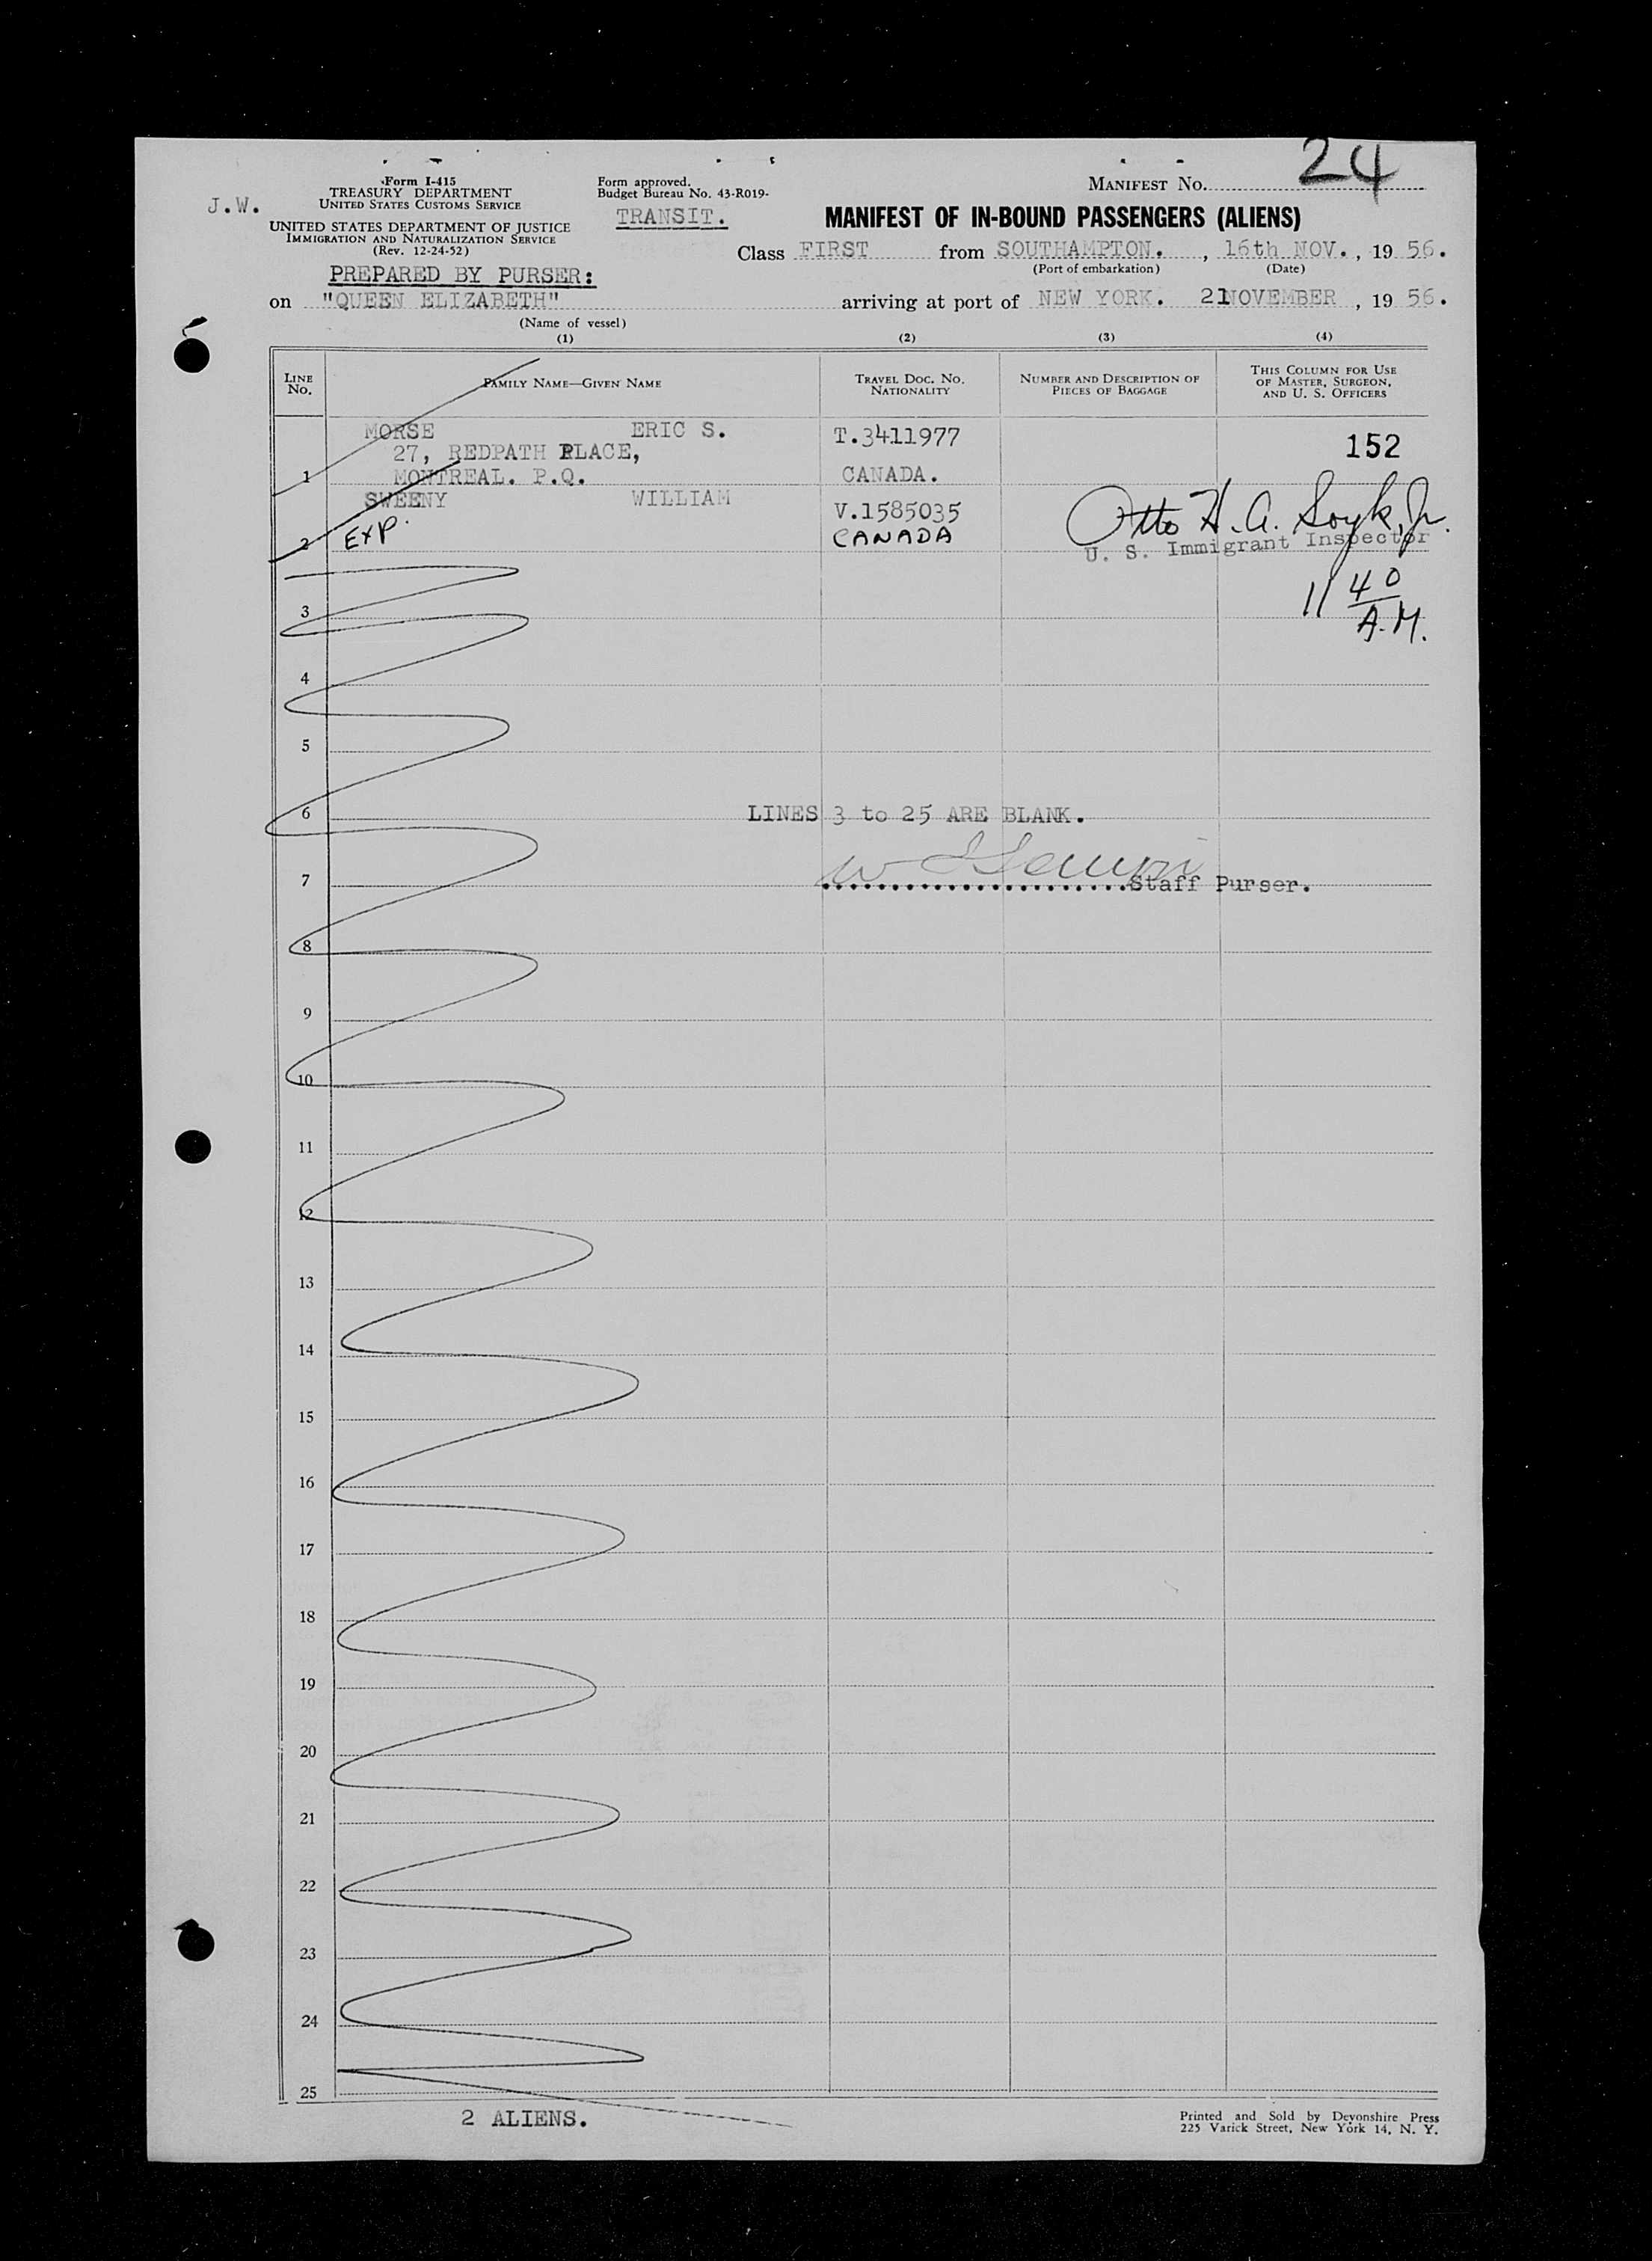 24
J.W.
Form I-415
TREASURY DEPARTMENT
UNITED STATES CUSTOMS SERVICE
UNITED STATES DEPARTMENT OF JUSTICE
IMMIGRATION AND NATURALIZATION SERVICE
(Rev. 12-24-52)
PREPARED BY PURSER:
Form approved.
Budget Bureau No. 43-R019-
TRANSIT.
MANIFEST NO.
MANIFEST OF IN-BOUND PASSENGERS (ALIENS)
Class FIRST from SOUTHAMPTON. , 16th NOV. , 19 56.
(Port of embarkation) (Date)
on "QUEEN ELIZABETH" arriving at port of NEW YORK. 21 NOVEMBER , 19 56.
(Name of vessel)
(1) (2) (3) (4)
LINE NO.
FAMILY NAME—GIVEN NAME
TRAVEL DOC. NO.
NATIONALITY
NUMBER AND DESCRIPTION OF
PIECES OF BAGGAGE
THIS COLUMN FOR USE
OF MASTER, SURGEON,
AND U. S. OFFICERS
MORSE ERIC S. T.3411977 152
27, REDPATH PLACE,
1 MONTREAL. P.Q. CANADA.
SWEENY WILLIAM V.1585035 Otto H. A. Soyk, Jr.
2 EXP. CANADA U. S. Immigrant Inspector
11 40
A.M.
3
4
5
6 LINES 3 to 25 ARE BLANK.
7 Staff Purser.
8
9
10
11
12
13
14
15
16
17
18
19
20
21
22
23
24
25
2 ALIENS.
Printed and Sold by Devonshire Press
225 Varick Street, New York 14, N. Y.